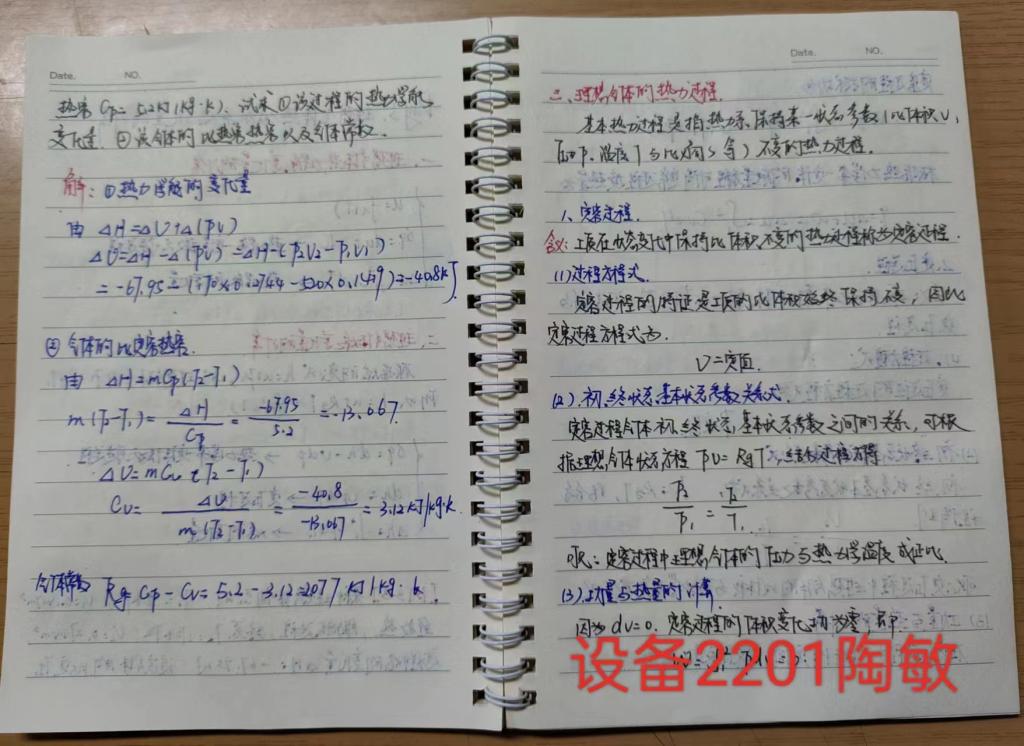 Date. NO.
热容 Cp= 5.2kJ/(kg·k). 试求①该过程的热力学能
变化量 ②该气体的比定容热容以及气体常数.
解: ①热力学能的变化量
由 △H=△U+△(pV)
△U=△H-△(pV)=△H-(P₂V₂-P₁V₁)
=-67.95-(170×0.2744-500×0.1419)=-40.8kJ
②气体的比定容热容.
由 △H=mCp(T₂-T₁)
m(T₂-T₁)= △H/Cp = -67.95/5.2 =-13.067
△U=mCv(T₂-T₁)
Cv= △U/m(T₂-T₁) = -40.8/-13.067 = 3.12kJ/kg·k.
气体常数 Rg=Cp-Cv=5.2-3.12=2.077 kJ/kg·k.
Date. NO.
三、理想气体的热力过程.
基本热力过程是指热力系保持某一状态参数(比体积V,
压力P.温度T与比熵s等)不变的热力过程.
1、定容过程.
含义:工质在状态变化中保持比体积不变的热力过程称为定容过程.
(1)过程方程式.
定容过程的特征是工质的比体积始终保持不变, 因此
定容过程方程式为.
V=定值.
(2).初.终状态基本状态参数关系式
定容过程气体初.终状态基本状态参数之间的关系, 可根
据理想气体状态方程 PV=RgT,结合过程方程得
P₂/P₁ = T₂/T₁
即: 定容过程中理想气体的压力与热力学温度成正比
(3)功量与热量的计算
因为 dv=0. 定容过程的体积变化功为零,即
设备2201陶敏